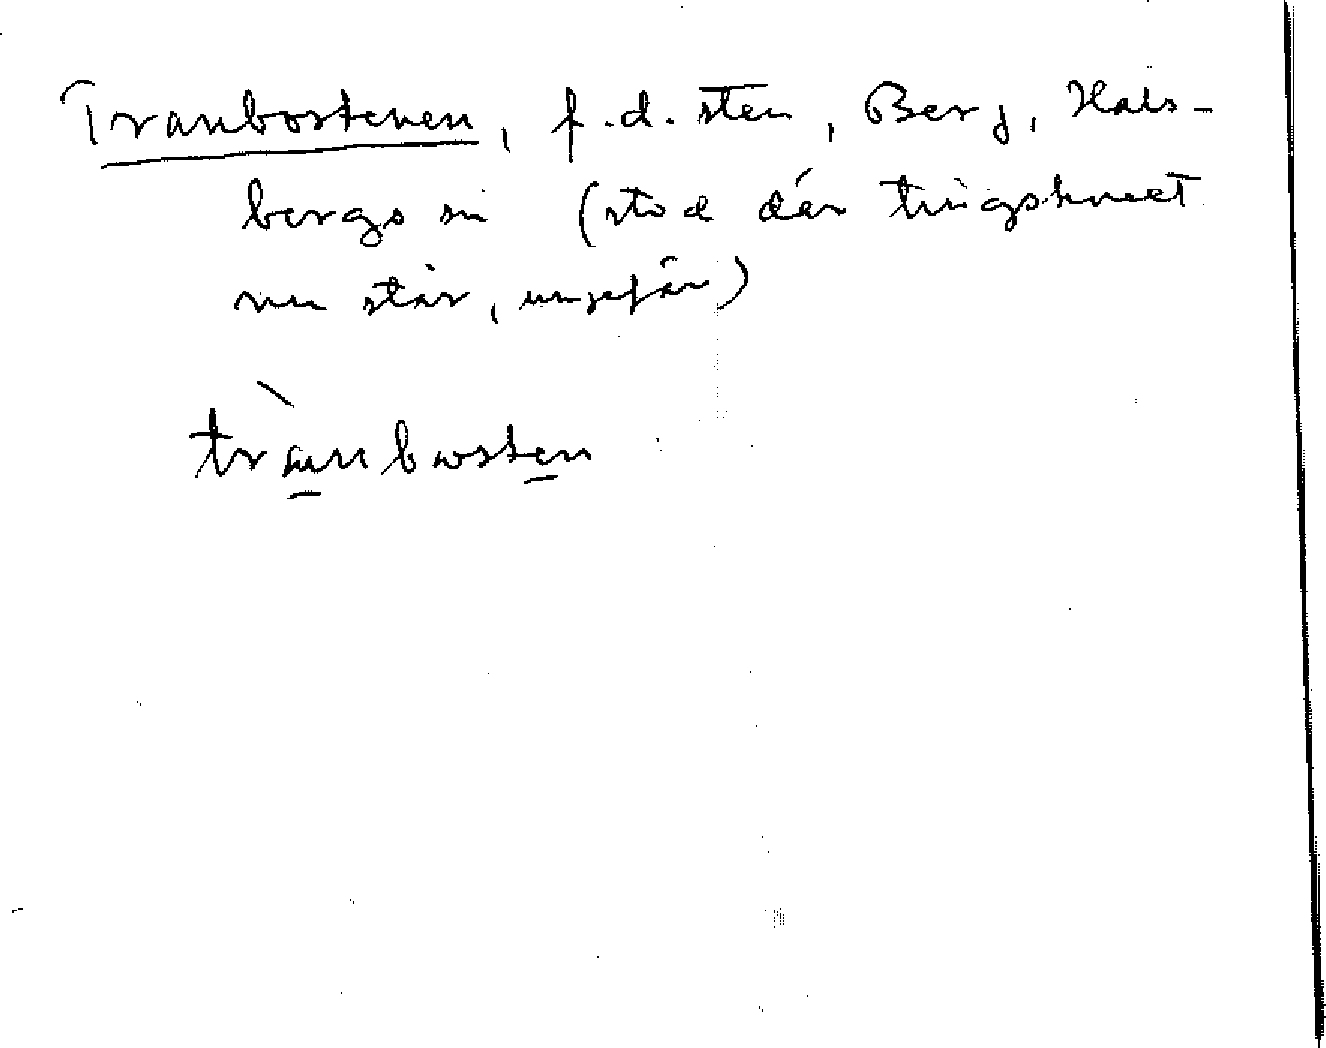 Tranbostenen, f.d. sten, Berg, Hals-
bergs sn (stod där tingshuset
nu står, ungefär)
trànnbosten